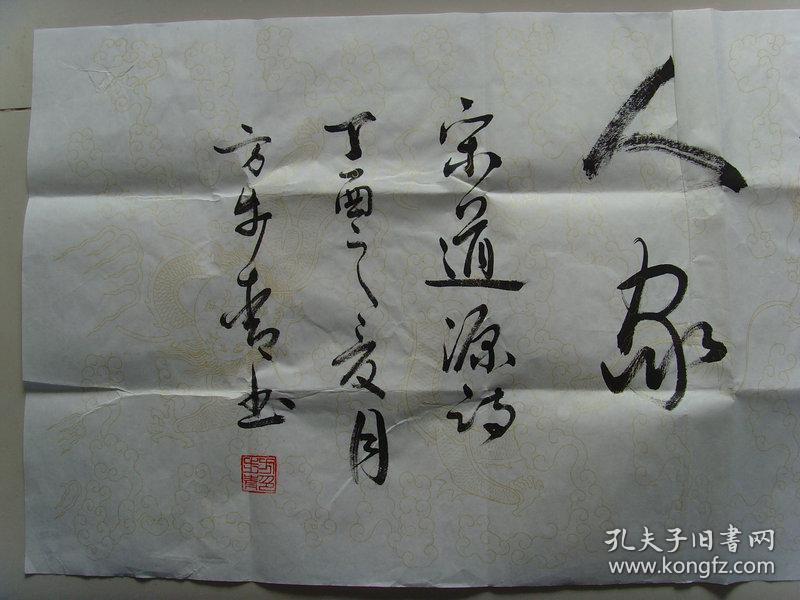 人家
宋道源诗
丁酉之夏月
方步青书
孔夫子旧書网
www.kongfz.com